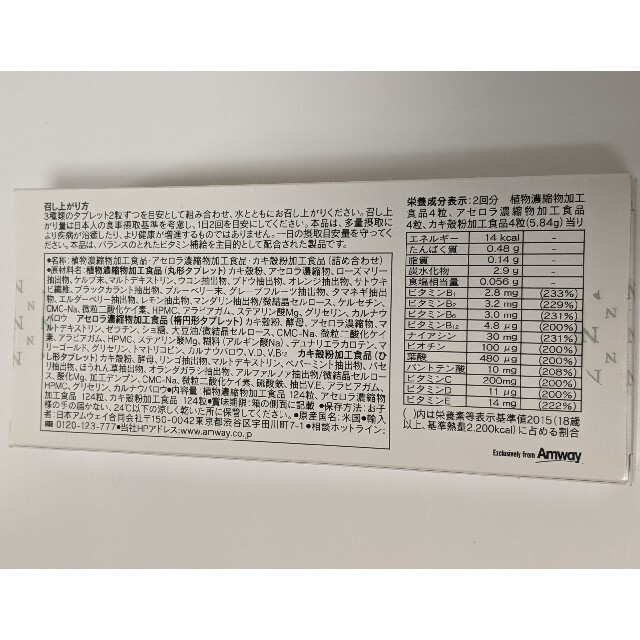 召し上がり方
3種類のタブレット2粒ずつを目安として組み合わせ、水とともにお召し上がりください。召し上がり
量は日本人の食事摂取基準を考慮し、1日2回を目安にしてください。本品は、多量摂取に
より疾病が治癒したり、より健康が増進するものではありません。一日の摂取目安量を守ってく
ださい。本品は、バランスのとれたビタミン補給を主目的として配合された製品です。
●名称:植物濃縮物加工食品・アセロラ濃縮物加工食品・カキ殻粉加工食品(詰め合わせ)
●原材料名:植物濃縮物加工食品(丸形タブレット)カキ殻粉、アセロラ濃縮物、ローズマリー
抽出物、ケルプ末、マルトデキストリン、ウコン抽出物、ブドウ抽出物、オレンジ抽出物、サトウキ
ビ繊維、ブラックカラント抽出物、ブルーベリー末、グレープフルーツ抽出物、タマネギ抽出
物、エルダーベリー抽出物、レモン抽出物、マンダリン抽出物/微結晶セルロース、ケルセチン、
CMC-Na、微粒二酸化ケイ素、HPMC、アラビアガム、ステアリン酸Mg、グリセリン、カルナウ
バロウ アセロラ濃縮物加工食品(楕円形タブレット)カキ殻粉、酵母、アセロラ濃縮物、マ
ルトデキストリン、ゼラチン、ショ糖、大豆油/微結晶セルロース、CMC-Na、微粒二酸化ケイ
素、アラビアガム、HPMC、ステアリン酸Mg、糊料(アルギン酸Na)、デュナリエラカロテン、マ
リーゴールド、グリセリン、トマトリコピン、カルナウバロウ、V.D、V.B12 カキ殻粉加工食品(ひ
し形タブレット)カキ殻粉、酵母、リンゴ抽出物、マルトデキストリン、ペパーミント抽出物、パセ
リ抽出物、ほうれん草抽出物、オランダガラシ抽出物、アルファルファ抽出物/微結晶セルロー
ス、酸化Mg、加工デンプン、CMC-Na、微粒二酸化ケイ素、硫酸鉄、抽出V.E、アラビアガム、
HPMC、グリセリン、カルナウバロウ ●内容量:植物濃縮物加工食品 124粒、アセロラ濃縮物加工
食品 124粒、カキ殻粉加工食品 124粒●賞味期限:箱の側面に記載 ●保存方法:お子
様の手の届かない、24℃以下の涼しく乾いた所に保管してください。●原産国名:米国●輸入
者:日本アムウェイ合同会社〒150-0042東京都渋谷区宇田川町7-1 ●相談ホットライン:
0120-123-777●当社HPアドレス:www.amway.co.jp
栄養成分表示:2回分 植物濃縮物加工
食品4粒、アセロラ濃縮物加工食品
4粒、カキ殻粉加工食品4粒(5.84g)当り
エネルギー 14 kcal -
たんぱく質 0.48 g -
脂質 0.14 g -
炭水化物 2.9 g -
食塩相当量 0.056 g -
ビタミンB1 2.8 mg (233%)
ビタミンB2 3.2 mg (229%)
ビタミンB6 3.0 mg (231%)
ビタミンB12 4.8 μg (200%)
ナイアシン 30 mg (231%)
ビオチン 100 μg (200%)
葉酸 480 μg (200%)
パントテン酸 10 mg (208%)
ビタミンC 200mg (200%)
ビタミンD 11 μg (200%)
ビタミンE 14 mg (222%)
( )内は栄養素等表示基準値2015(18歳
以上、基準熱量2,200kcal)に占める割合
Exclusively from Amway